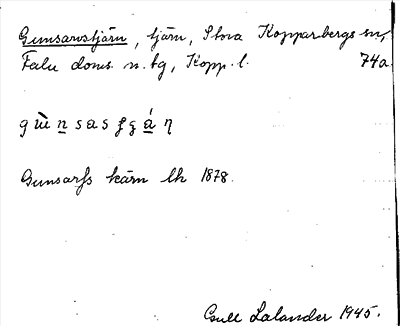 Gunsarvstjärn, tjärn, Stora Kopparbergs sn,
Falu doms. n. tg, Kopp. l. 74a
Gunsarfs kärn lk 1878.
Gull Lalander 1945.